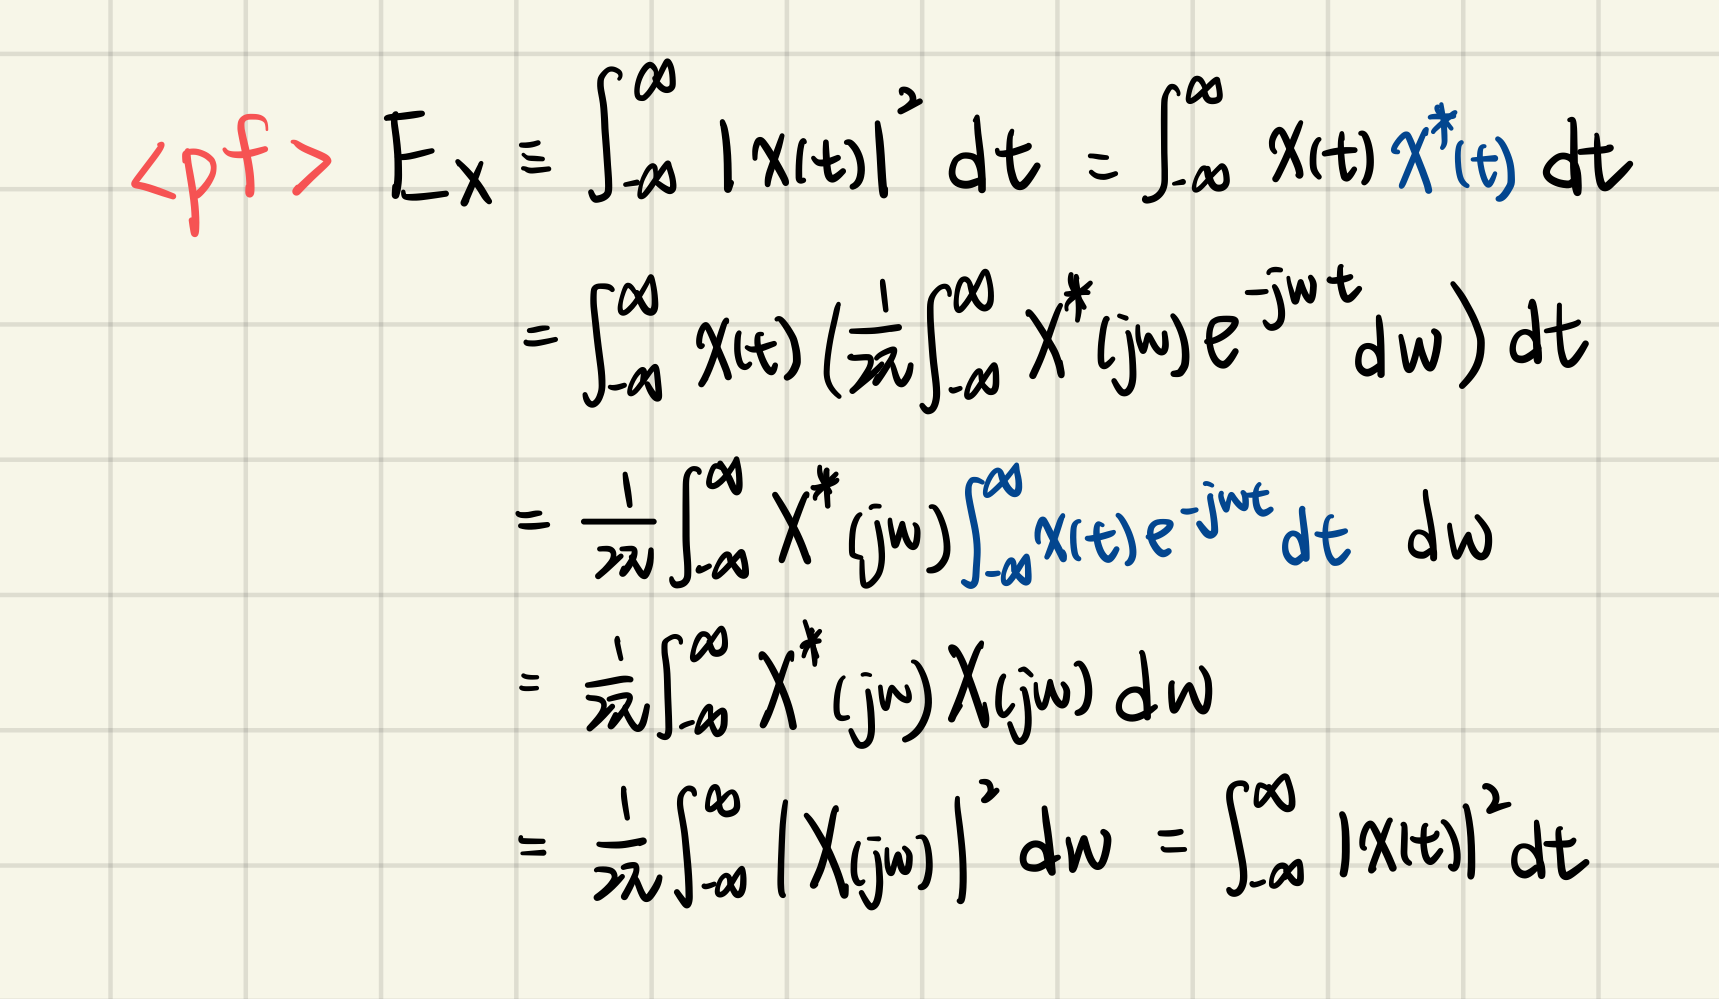 <pf> Eₓ ≡ ∫_{-∞}^{∞} |x(t)|² dt = ∫_{-∞}^{∞} x(t) x*(t) dt
= ∫_{-∞}^{∞} x(t) (1/2π ∫_{-∞}^{∞} X*(jw) e^{-jwt} dw) dt
= 1/2π ∫_{-∞}^{∞} X*(jw) ∫_{-∞}^{∞} x(t) e^{-jwt} dt dw
= 1/2π ∫_{-∞}^{∞} X*(jw) X(jw) dw
= 1/2π ∫_{-∞}^{∞} |X(jw)|² dw = ∫_{-∞}^{∞} |x(t)|² dt